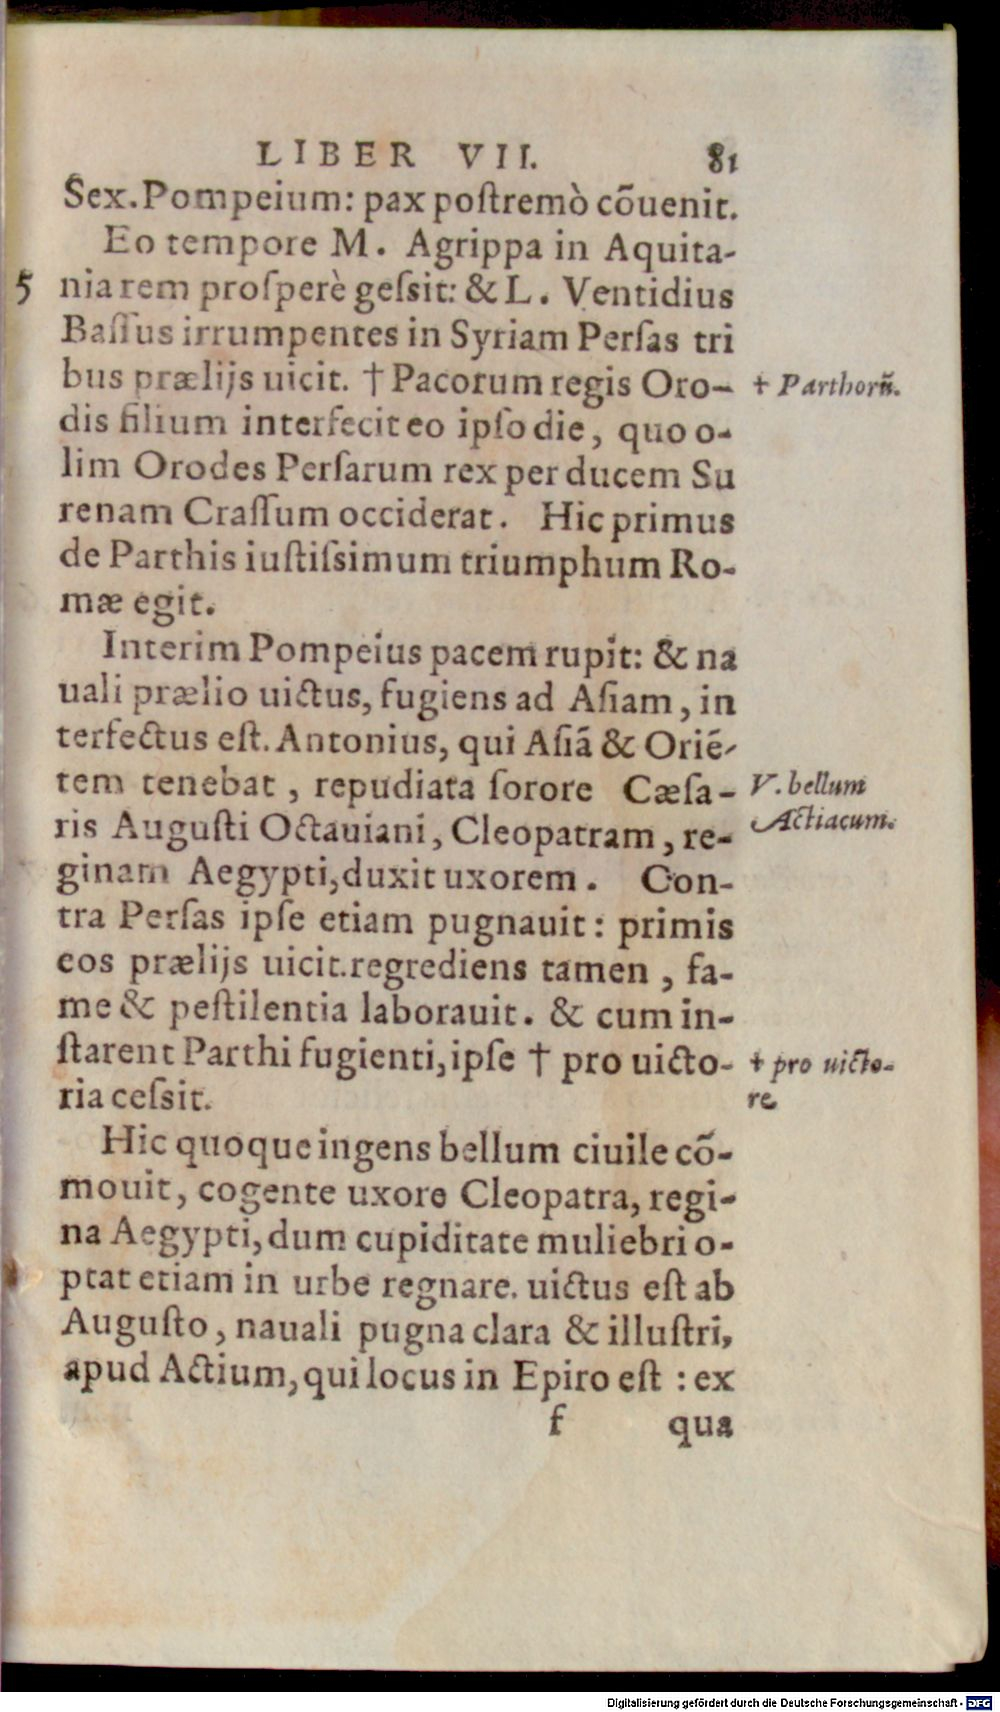 LIBER VII. 81
Sex. Pompeium: pax postremò cōuenit.
Eo tempore M. Agrippa in Aquita-
5 nia rem prosperè gessit: & L. Ventidius
Bassus irrumpentes in Syriam Persas tri
bus prælijs uicit. † Pacorum regis Oro-
+ Parthorũ.
dis filium interfecit eo ipso die, quo o-
lim Orodes Persarum rex per ducem Su
renam Crassum occiderat. Hic primus
de Parthis iustissimum triumphum Ro-
mæ egit.
Interim Pompeius pacem rupit: & na
uali prælio uictus, fugiens ad Asiam, in
terfectus est. Antonius, qui Asiã & Oriē-
tem tenebat, repudiata sorore Cæsa-
V. bellum
ris Augusti Octauiani, Cleopatram, re-
Actiacum.
ginam Aegypti, duxit uxorem. Con-
tra Persas ipse etiam pugnauit: primis
eos prælijs uicit. regrediens tamen, fa-
me & pestilentia laborauit. & cum in-
starent Parthi fugienti, ipse † pro uicto-
+ pro uicto-
ria cessit.
re
Hic quoque ingens bellum ciuile cō-
mouit, cogente uxore Cleopatra, regi-
na Aegypti, dum cupiditate muliebri o-
ptat etiam in urbe regnare. uictus est ab
Augusto, nauali pugna clara & illustri,
apud Actium, qui locus in Epiro est : ex
f qua
Digitalisierung gefördert durch die Deutsche Forschungsgemeinschaft - DFG